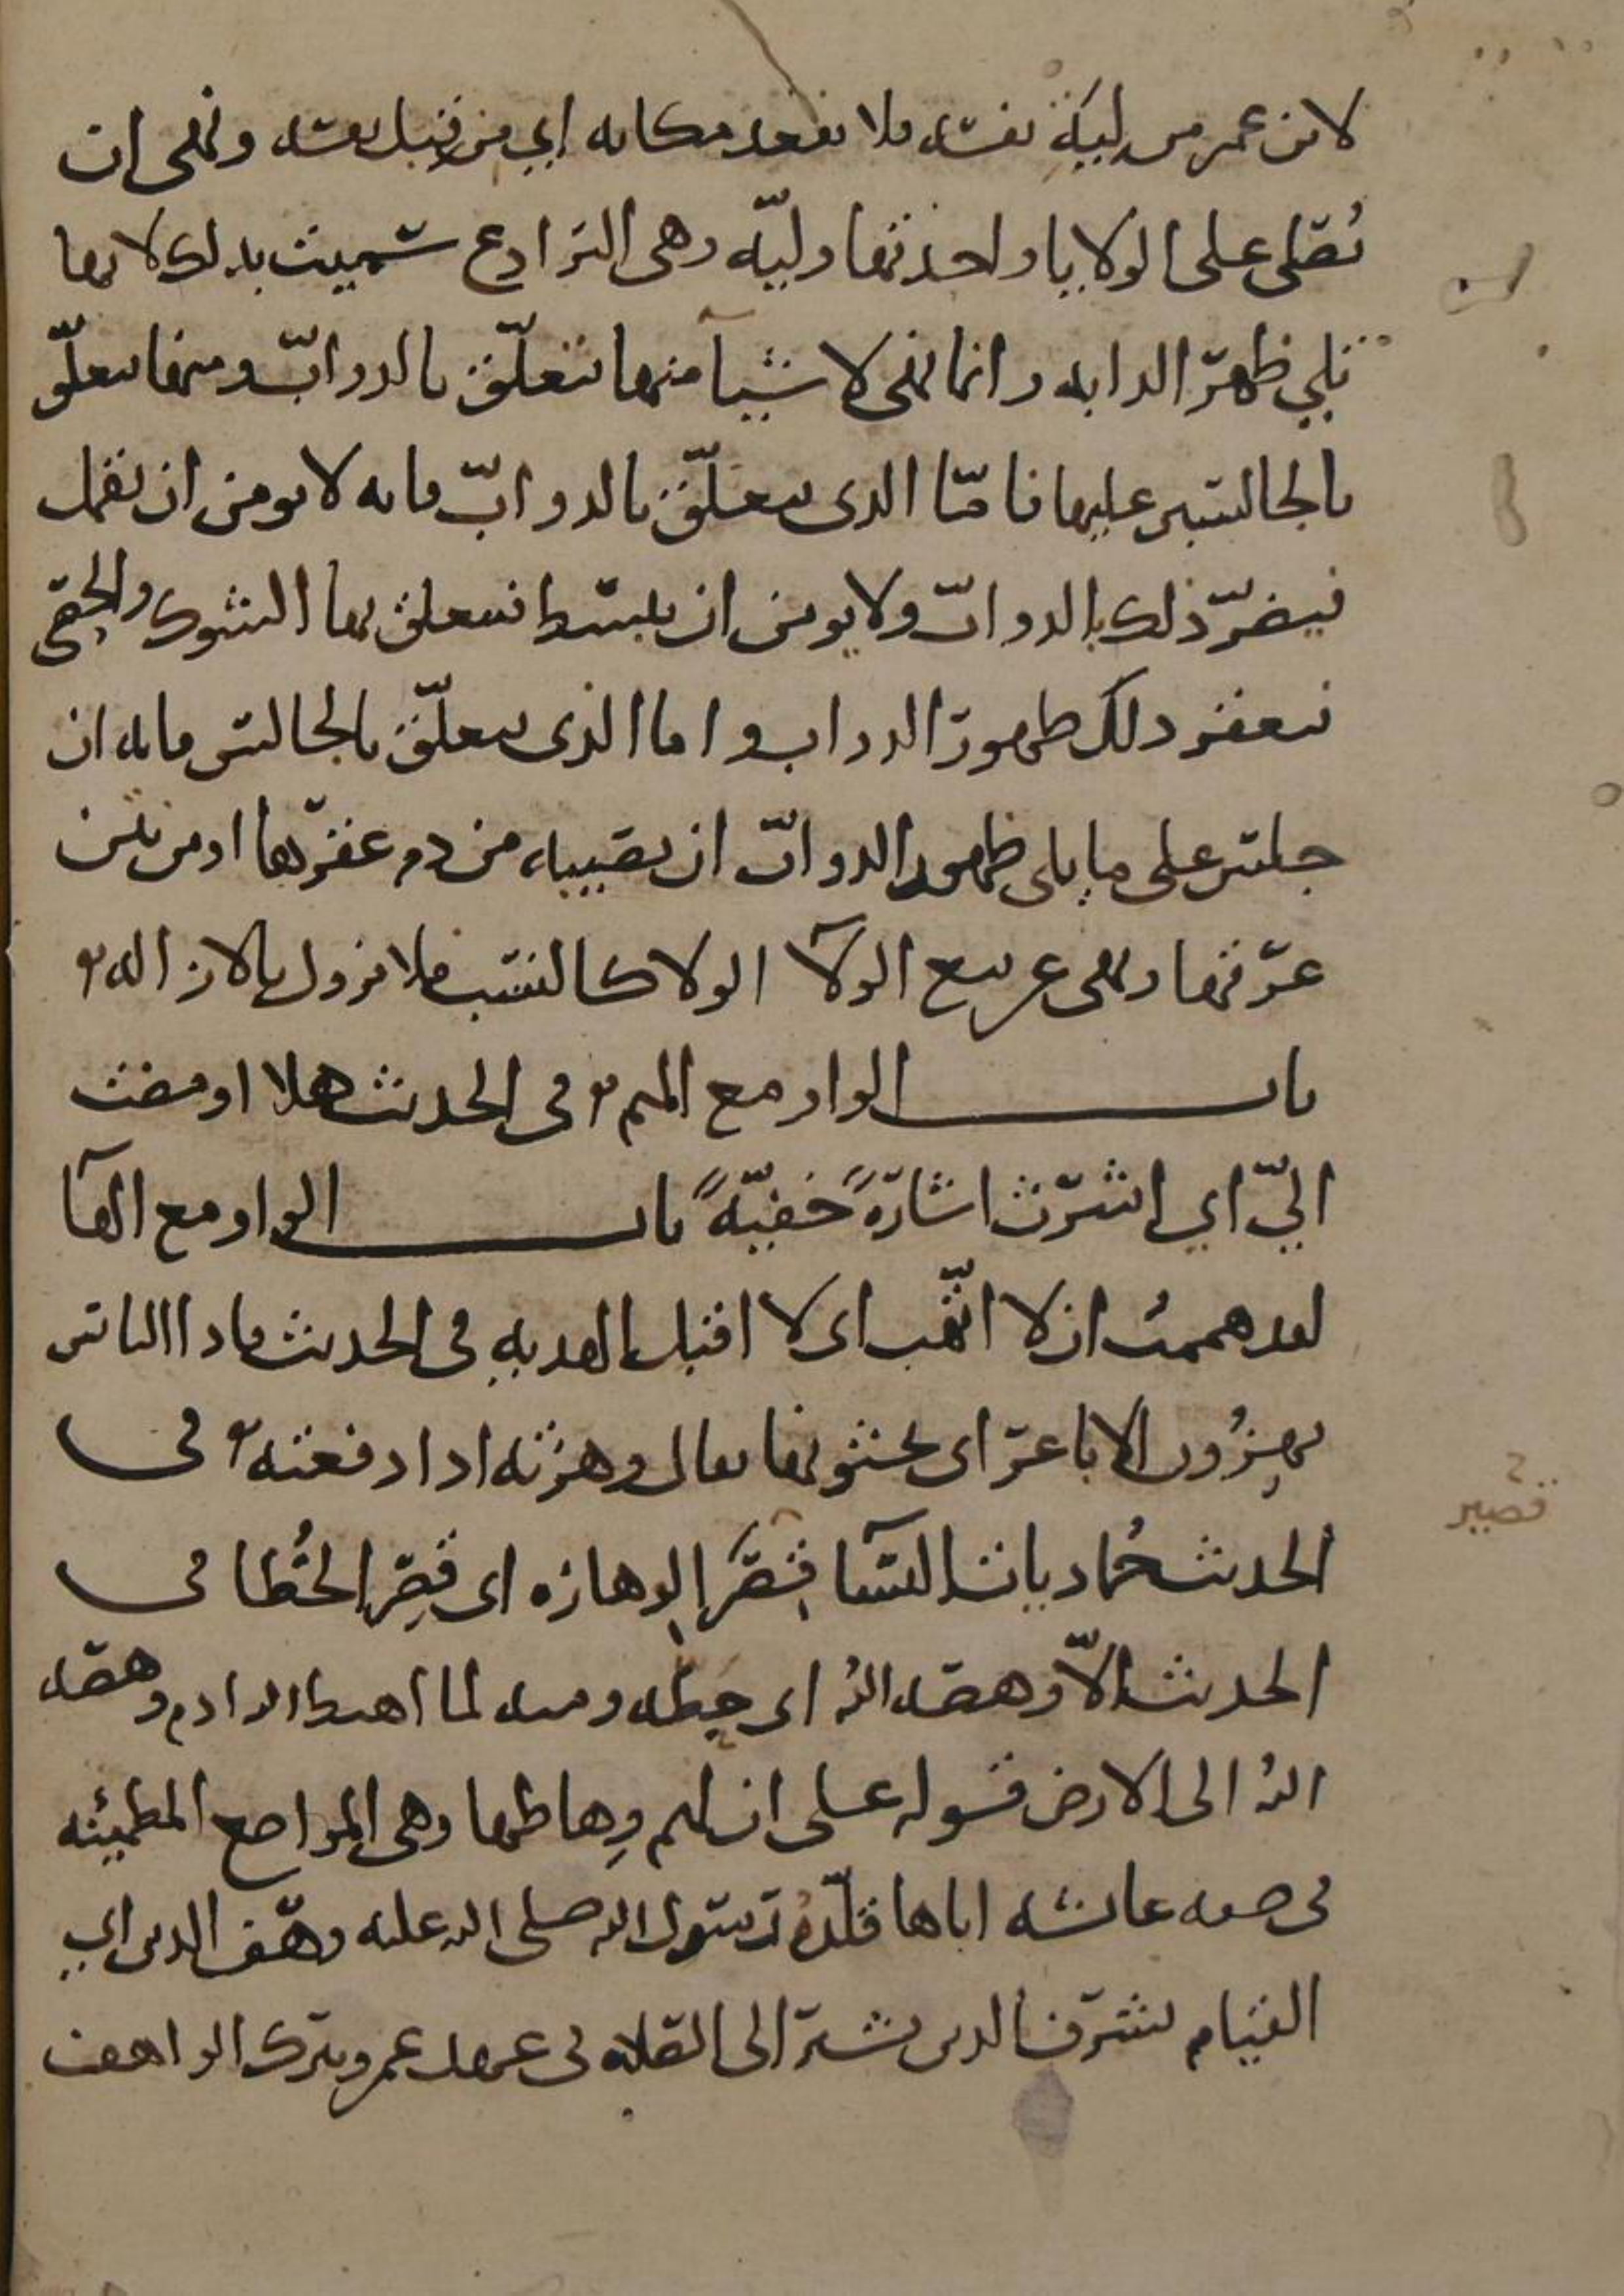 لابن عمر من لية نفسه فلا يقعد مكانه اي من قبل نفسه ونهى ان
يُصلى على الولايا واحدتها وليّه وهى البرادع سميت بذلك لانها
تلي ظهر الدابه وانما نهى لاشيآ منها تتعلّق بالدوابّ ومنها يتعلّق
بالجالسين عليها فامّا الذى يتعلّق بالدوابّ فانه لا يومن ان تقمل
فيضرّ ذلك بالدوابّ ولا يومن ان يبسط فيتعلق بها الشوك والحصى
فيعقر ذلك ظهور الدواب واما الذى يتعلّق بالجالس فانه ان
جلس على ما يلى ظهور الدوابّ ان يصيبه من دم عقرها او من نتن
عرقها ونهى عن بيع الولآ الولا كالنسب فلا يزول بالازاله
باب الواو مع الميم فى الحديث هلا اومضت
اليّ اي اشرت اشارةً خفيّةً باب الواو مع الهآ
لقد هممت ان لا اتّهب اى لا اقبل الهديه فى الحديث فاذا الناس
يهزُون الاباعر اى يحثونها يقال وهزته اذا دفعته فى
الحديث حُماديات النسآ قِصَر الوهازه اى قِصَر الخُطا فى
الحديث الّا وهصه الله اى حطه ومنه لما اهبط الله ادم وهصه
الله الى الارض قوله على ان لهم وِهاطها وهى المواضع المطمئنه
فى صفه عائشه اباها قلّدهُ رسول الله صلى الله عليه وهّف الدين اي
القيام بشرف الدين يشير الى الصلاه فى عهد عمر ويترك الواهف
قصير